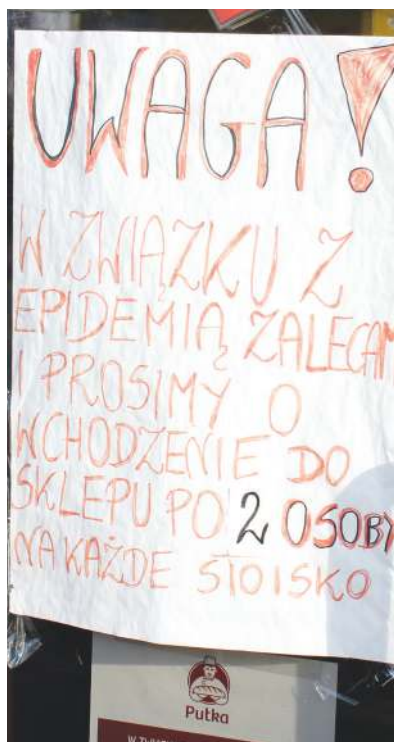 UWAGA!
W ZWIĄZKU Z
EPIDEMIĄ ZALECAM
I PROSIMY O
WCHODZENIE DO
SKLEPU PO 2 OSOBY
NA KAŻDE STOISKO
Putka